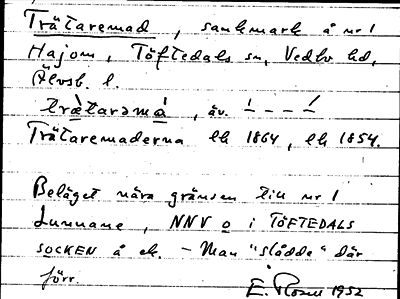 Trätaremad, sankmark å nr 1
Hajom, Töftedals sn, Vedbo hd,
Älvsb. l.
trä̀tarəmá, äv. — – – –
Trätaremaderna ek 1864, lk 1854.
Beläget nära gränsen till nr 1
Lunnane, NNV o i TÖFTEDALS
SOCKEN å ek. – Man "slådde" där
förr.
E. 1952